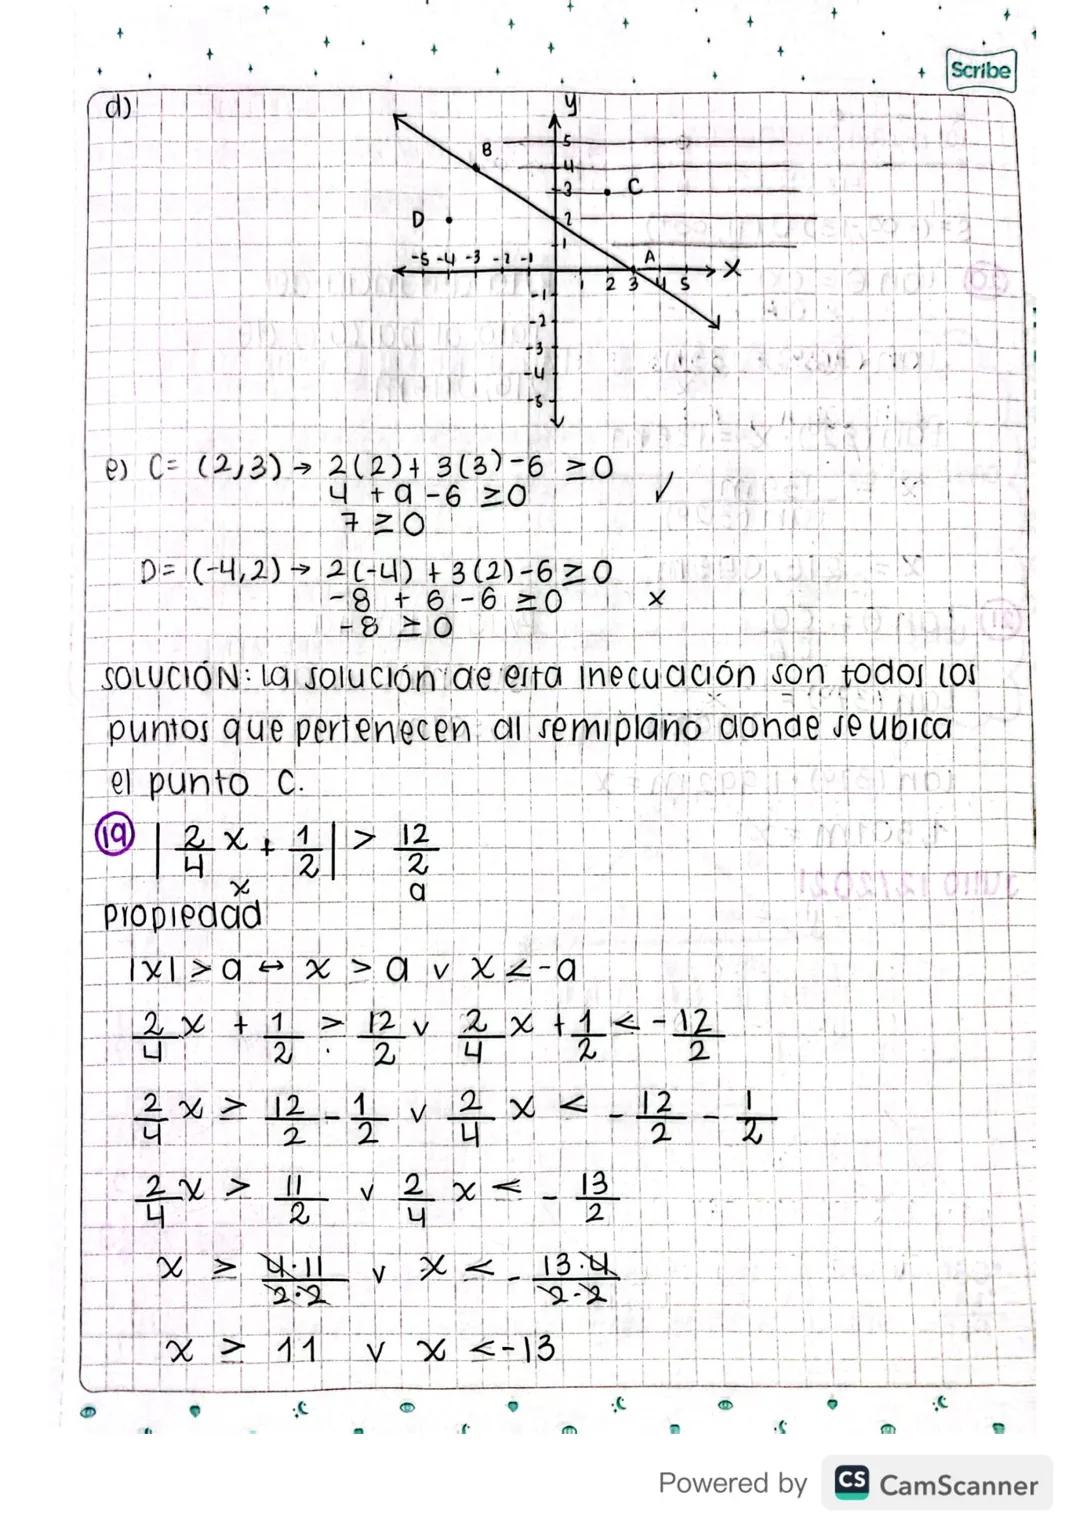 Scribe
d)
y
5
B
4
3 C
D 2
1
-5 -4 -3 -2 -1 A x
1 2 3 4 5
-1
-2
-3
-4
-5
e) C= (2,3) → 2(2)+ 3(3)-6 ≥0
4 +9-6 ≥0 ✓
7 ≥0
D= (-4,2) → 2(-4) + 3(2)-6≥0
-8 + 6-6 ≥0 x
-8 ≥0
SOLUCIÓN: la solución de esta inecuación son todos los
puntos que pertenecen al semiplano donde se ubica
el punto C.
19 |2/4 x + 1/2| > 12/2
x a
propiedad
|x| > a ↔ x > a v x < -a
2/4 x + 1/2 > 12/2 v 2/4 x + 1/2 < - 12/2
2/4 x > 12/2 - 1/2 v 2/4 x < - 12/2 - 1/2
2/4 x > 11/2 v 2/4 x < - 13/2
x > 4·11/2·2 v x < - 13·4/2·2
x > 11 v x < -13
Powered by CS CamScanner